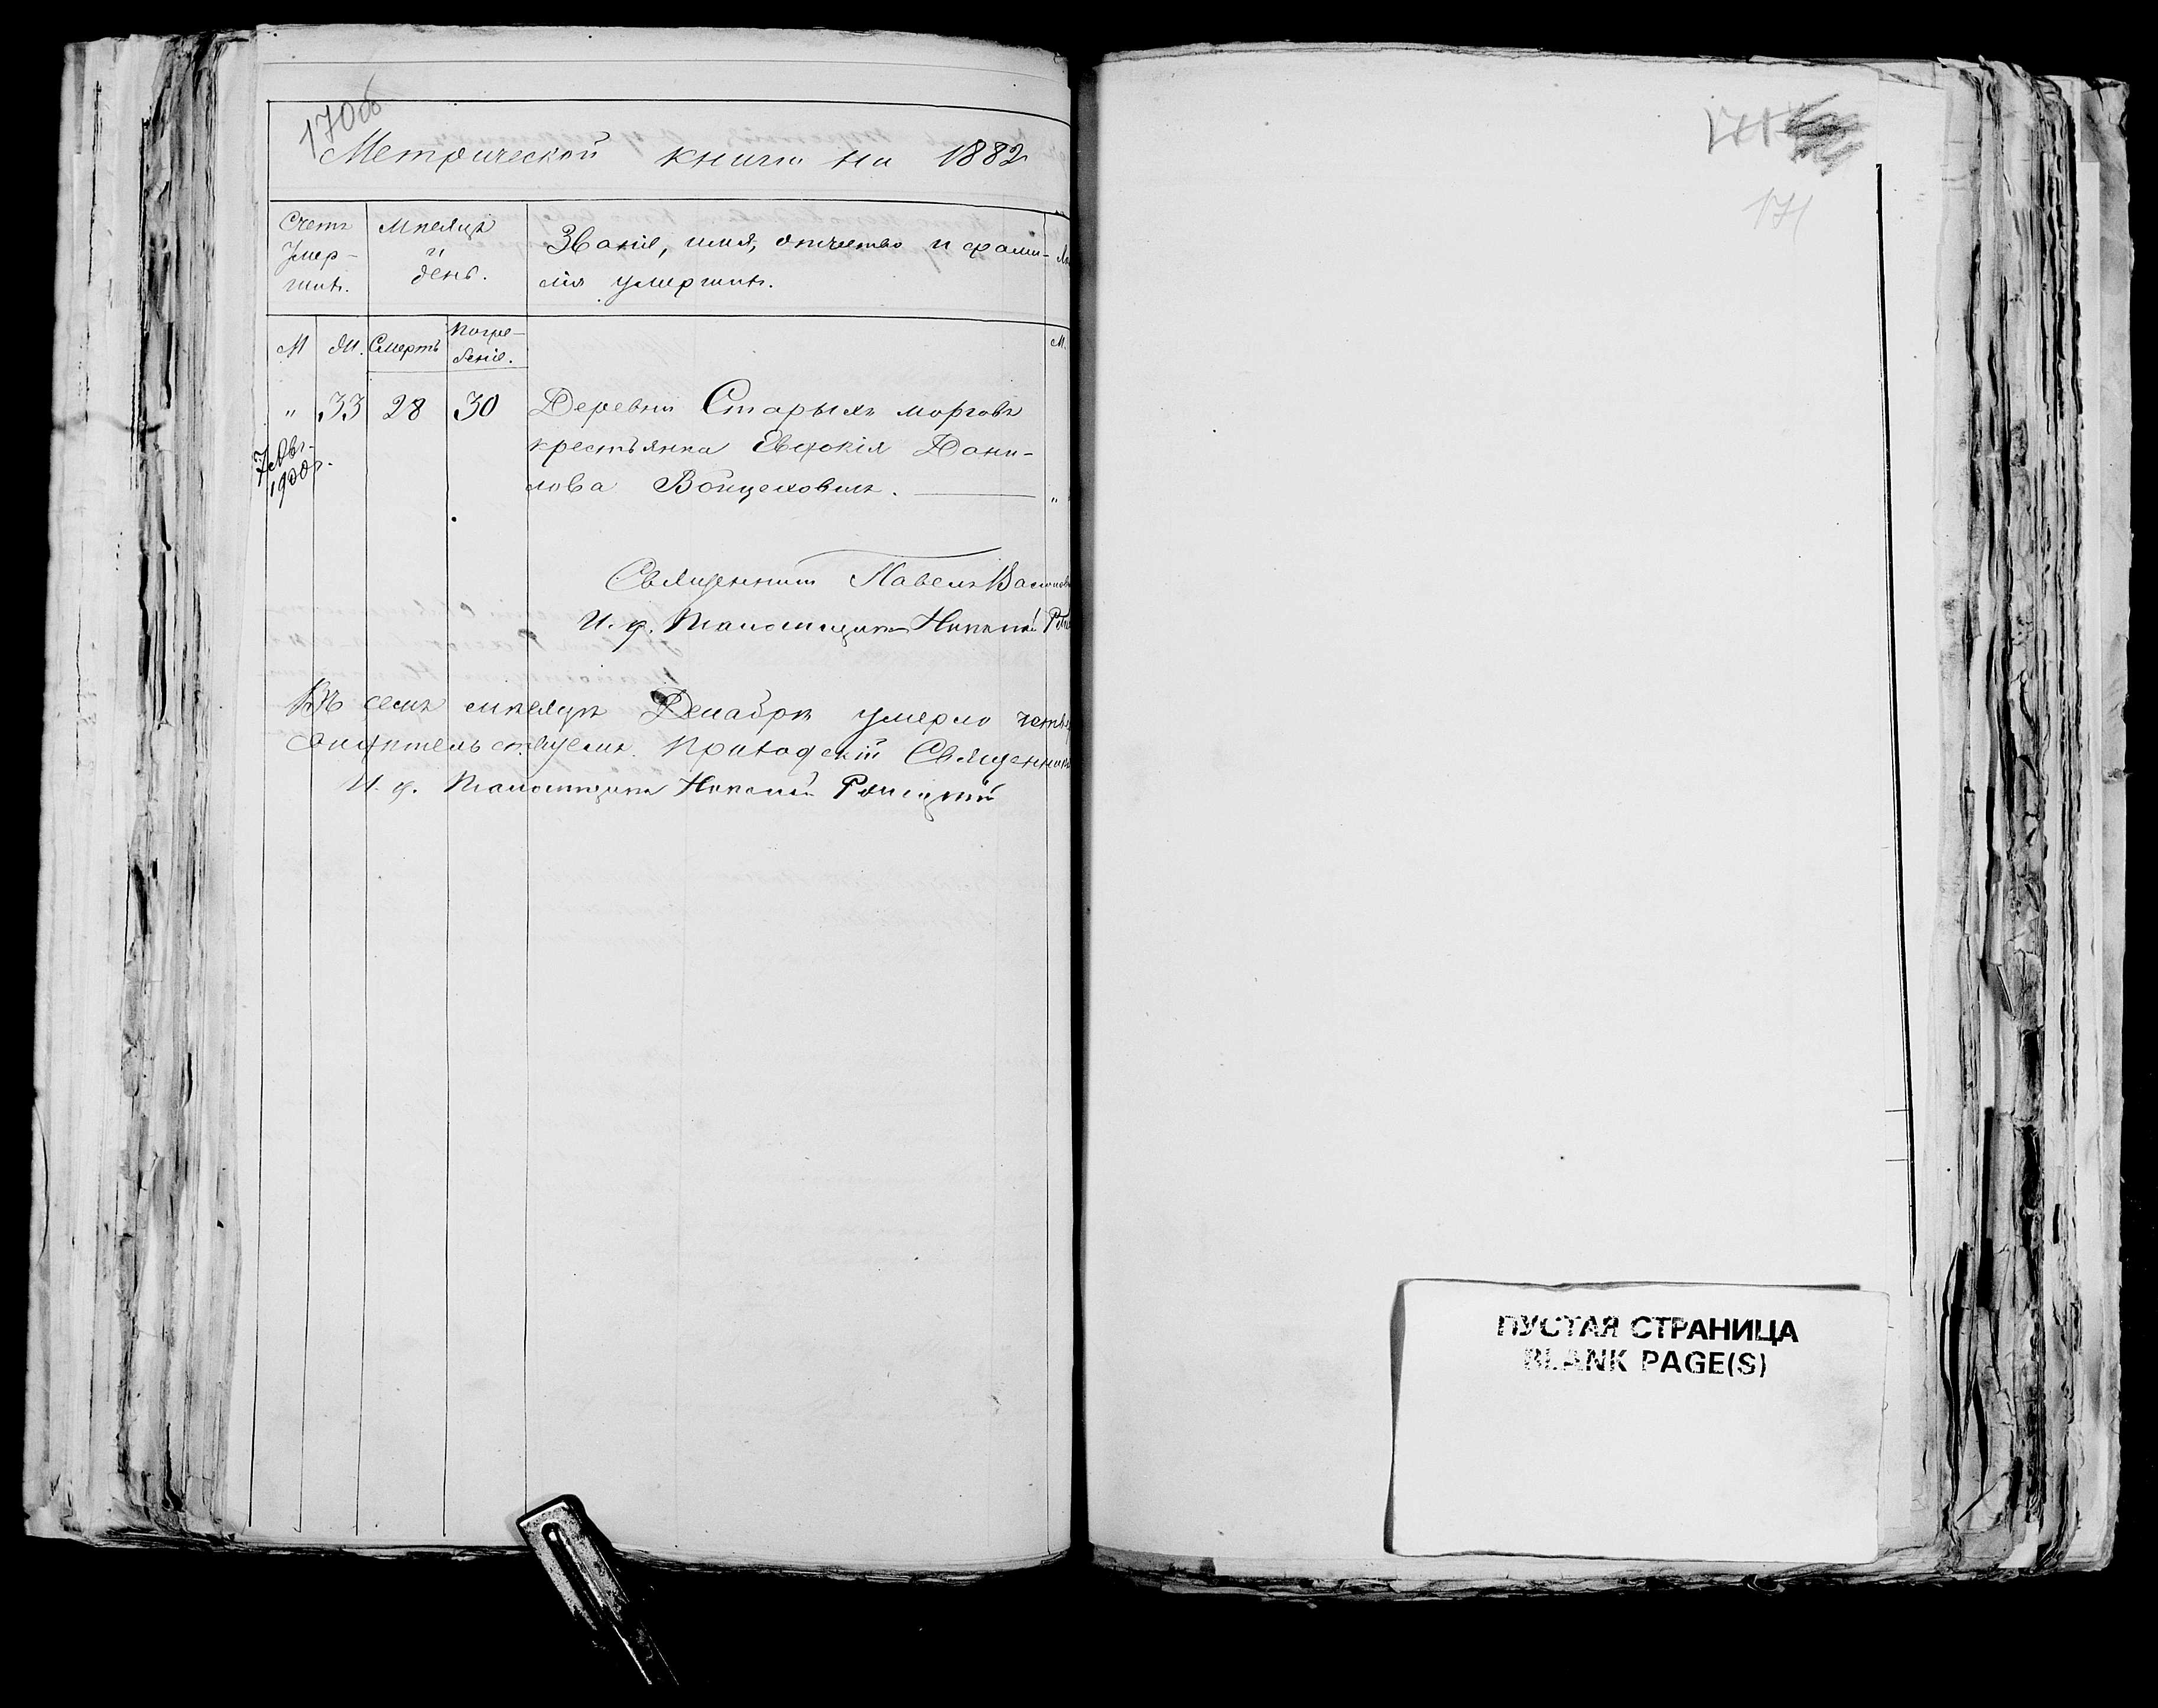 170об
Метрической книги на 1882
Счетъ Умер- шихъ.
Мѣсяцъ и день.
Званіе, имя, отчество и фами-
лія умершихъ.
М Ж. Смерть Погре-
бенія.
М.
" 33 28 30 Деревни Старыхъ морговъ
крестьянка Евдокія Дани-
лова Войцеховичъ. "
7 Авг.
1900 г.
Священникъ Павелъ
И. д. Псаломщика Николай
Въ семъ мѣсяцѣ Декабрѣ умерло
Приходскій Священникъ
И. д. Псаломщика Николай
171
171
ПУСТАЯ СТРАНИЦА
BLANK PAGE(S)